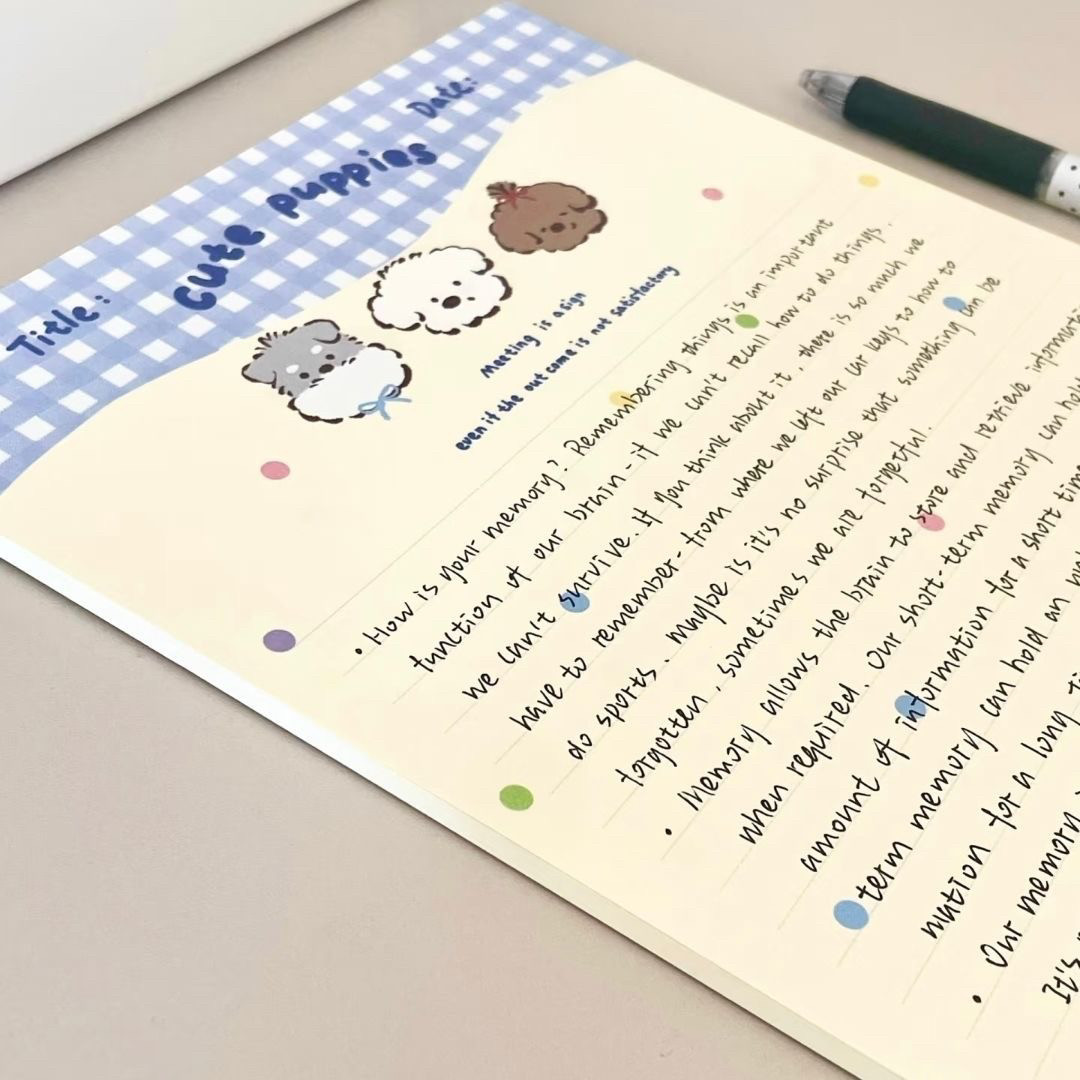 Title:
cute puppies
Date:
Meeting is a sign
even if the out come is not satisfactory
• How is your memory? Remembering things is an important
function of our brain - if we can't recall how to do things.
we can't survive. If you think about it, there is so much we
have to remember - from where we left our car keys to how to
do sports. maybe is it's no surprise that something can be
forgotten, sometimes we are forgetful.
• Memory allows the brain to store and retrieve informati
when required. Our short-term memory can hol
amount of information for a short time
term memory can hold an
mation for a long
• Our memory
It's